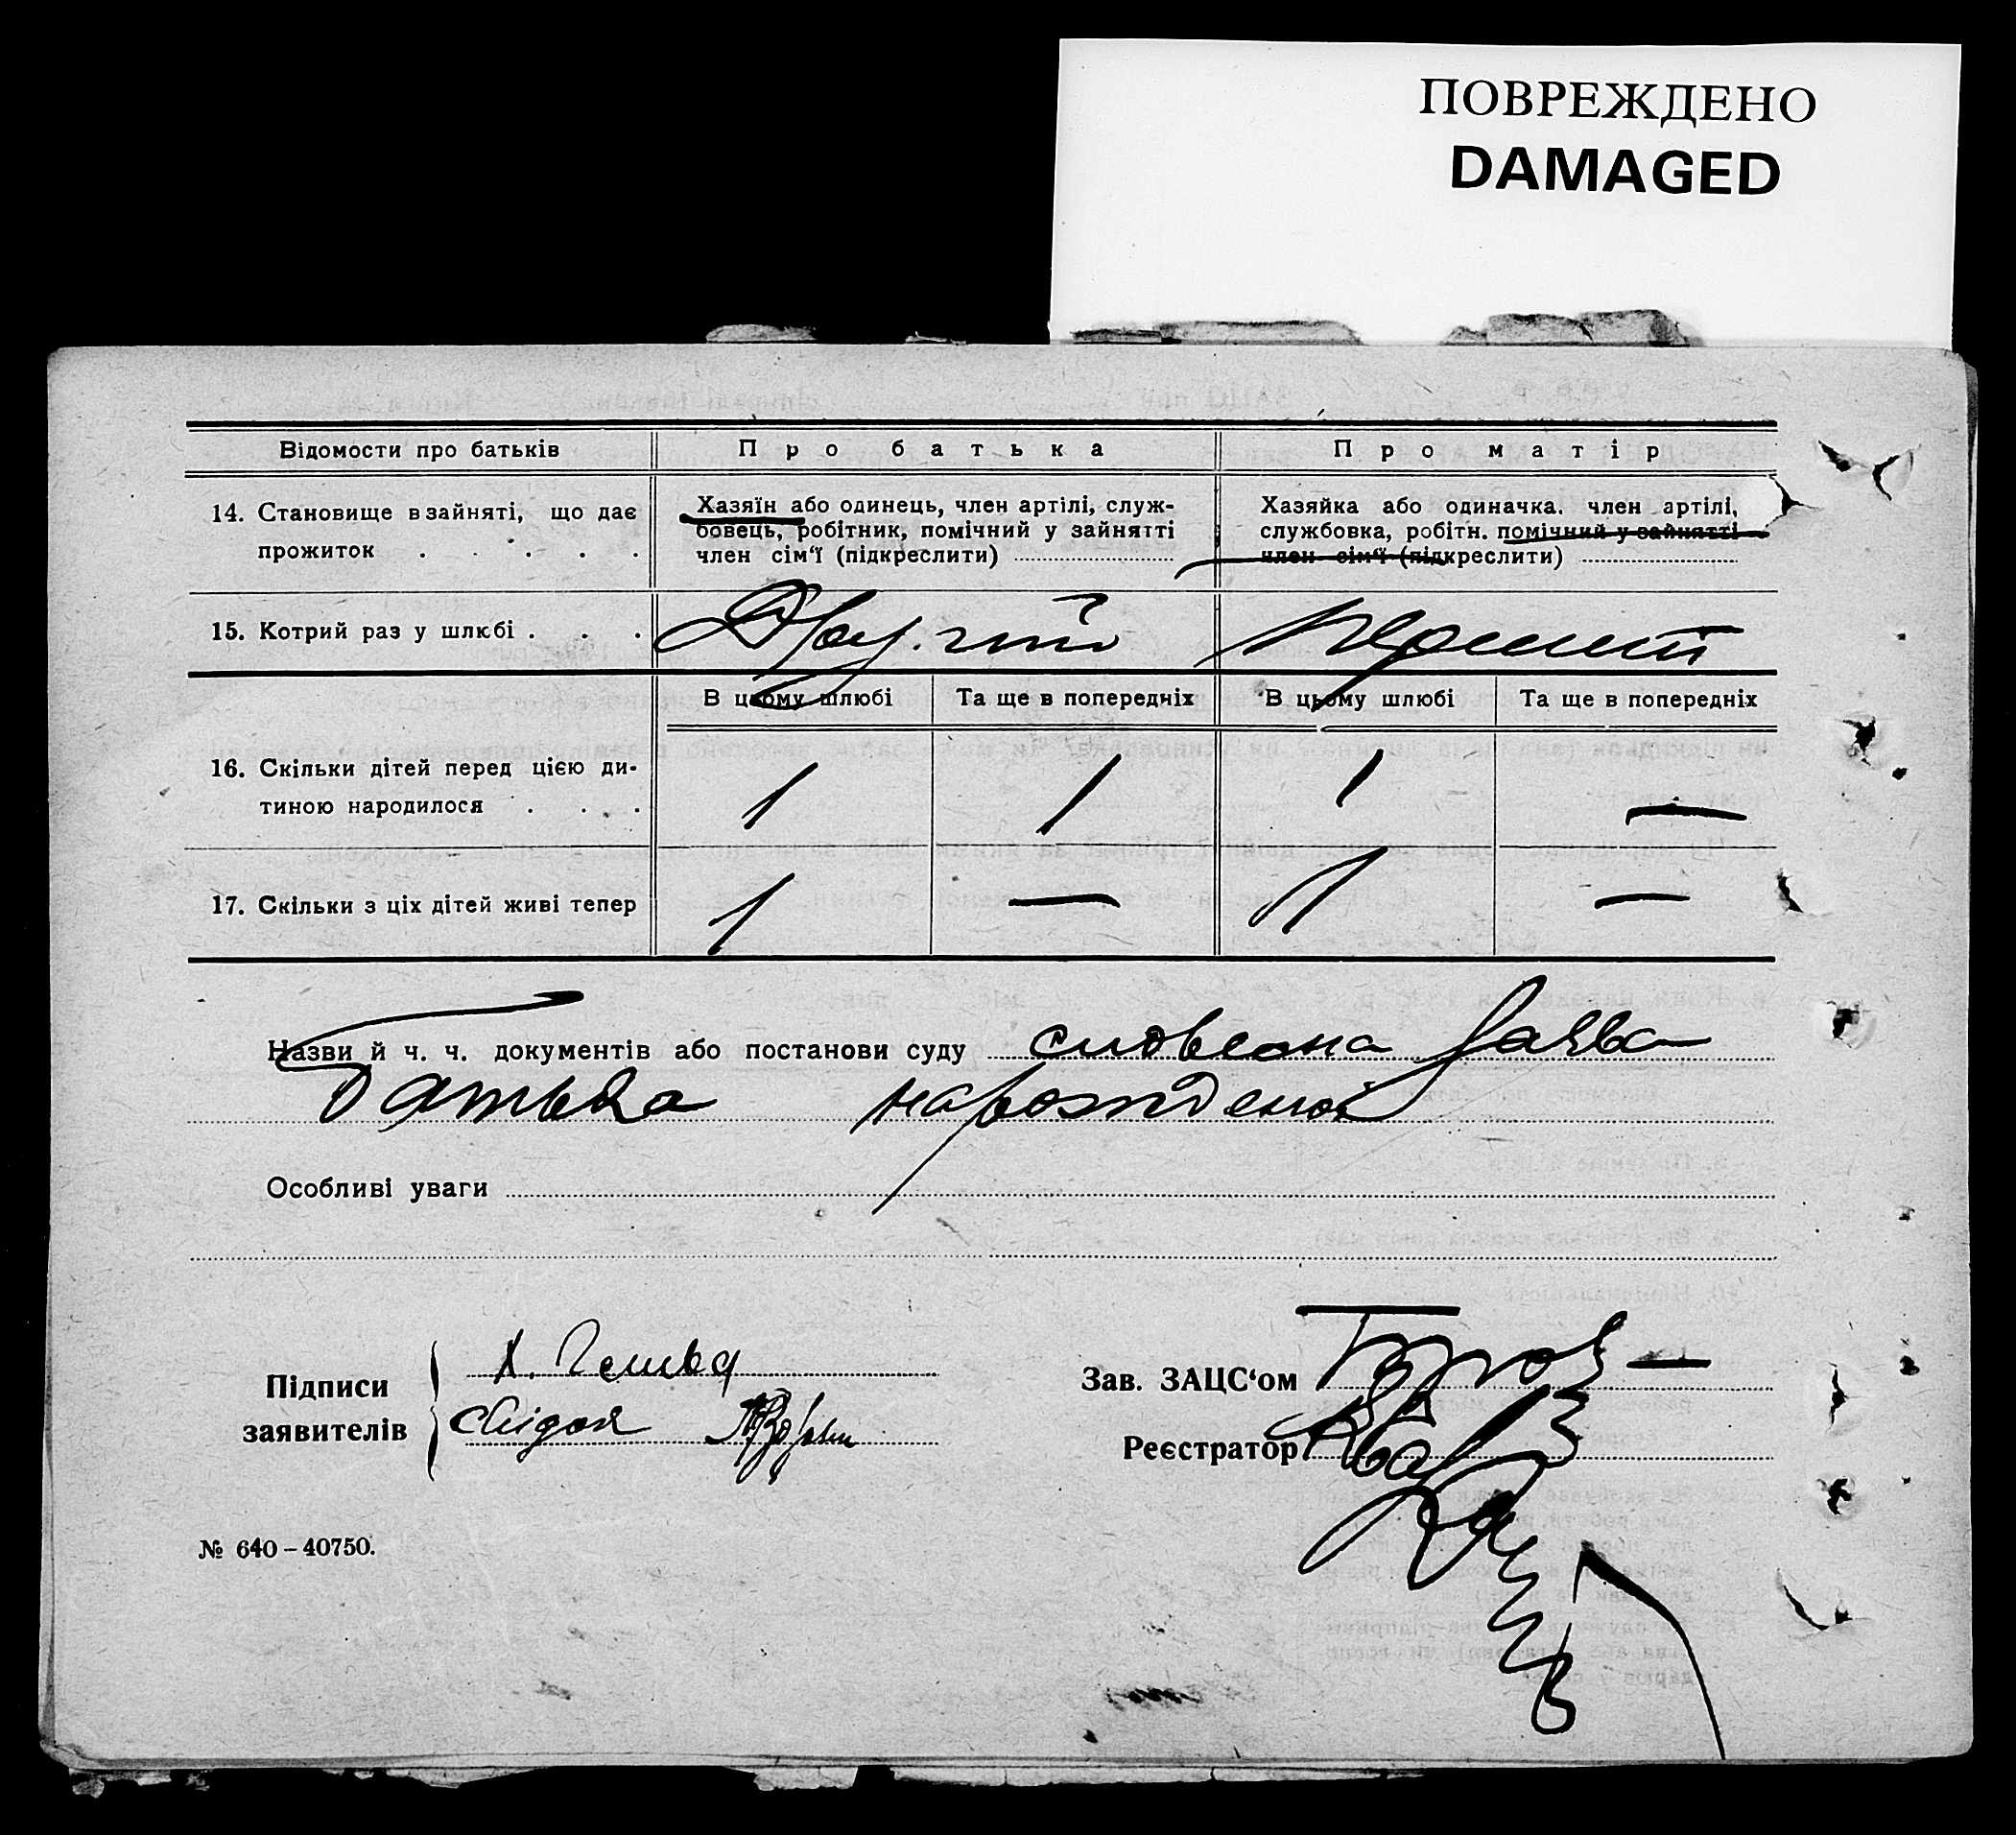 ПОВРЕЖДЕНО
DAMAGED
Відомости про батьків
Про батька
Про матір
14. Становище в зайняті, що дає
прожиток . . . . .
Хазяїн або одинець, член артілі, служ-
бовець, робітник, помічний у зайнятті
член сім'ї (підкреслити)
Хазяйка або одиначка. член артілі,
службовка, робітн. помічний у зайнятті
член сім'ї (підкреслити)
15. Котрий раз у шлюбі . . .
Другий
Перший
В цьому шлюбі
Та ще в попередніх
В цьому шлюбі
Та ще в попередніх
16. Скільки дітей перед цією ди-
тиною народилося . . . .
1
1
1
—
17. Скільки з ціх дітей живі тепер
1
—
1
—
Назви й ч. ч. документів або постанови суду словесна заява
батька
Особливі уваги
Підписи
заявителів
Зав. ЗАЦС'ом
Реєстратор
№ 640–40750.